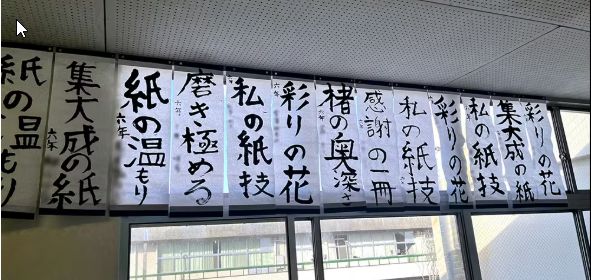 彩りの花
集大成の紙
私の紙技
彩りの花
私の紙技
感謝の一冊
楮の奥深さ
六年
彩りの花
六年
私の紙技
磨き極める
六年
紙の温もり
六年
集大成の紙
六年
紙の温もり